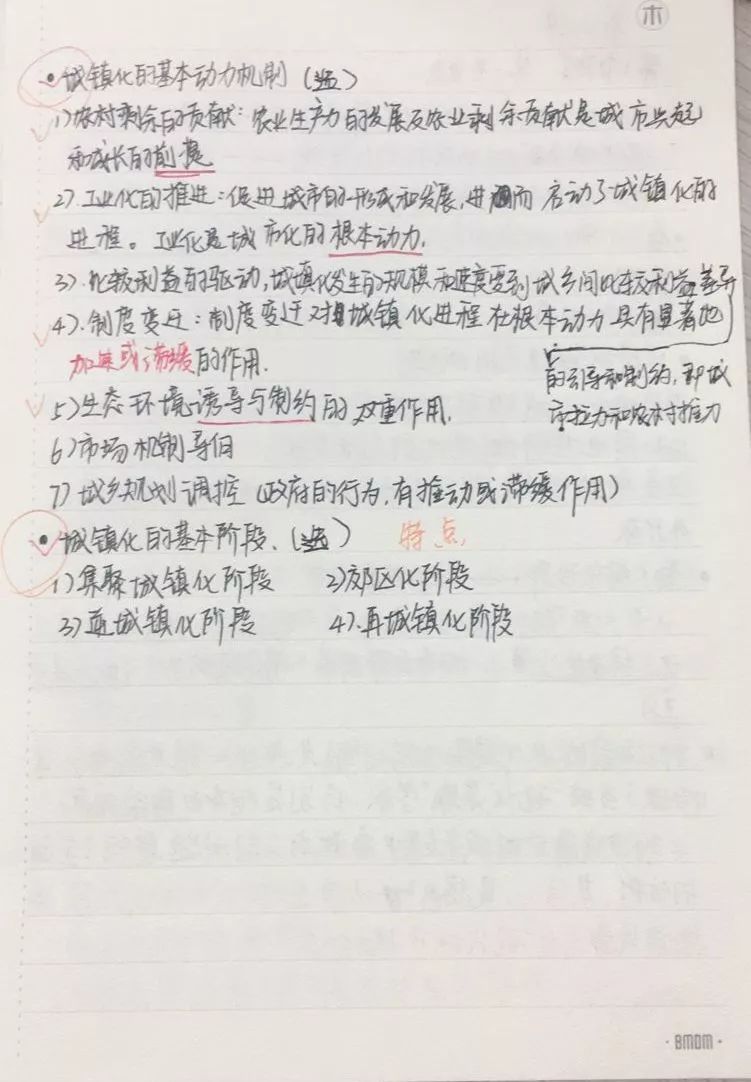 木
•城镇化的基本动力机制(选)
1)农村剩余的贡献：农业生产力的发展及农业剩余贡献是城市兴起
和成长的前提
2).工业化的推进：促进城市的形成和发展,进而启动了城镇化的
进程。工业化是城市化的根本动力.
3).比较利益的驱动,城填化发生的规模和速度受到城乡间比较利益差异
的引导和制约,即城
市拉力和农村推力
4).制度变迁：制度变迁对城镇化进程在根本动力具有显著地
加速或滞缓的作用.
5)生态环境诱导与制约的双重作用.
6)市场机制导向
7)城乡规划调控(政府的行为,有推动或滞缓作用)
•城镇化的基本阶段.(选) 特点
1)集聚城镇化阶段 2)郊区化阶段
3)逆城镇化阶段 4).再城镇化阶段
·BMDM·